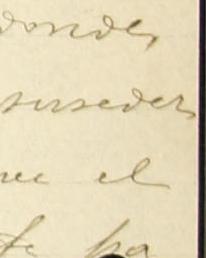 donde,
suseder
ue el
fe pa